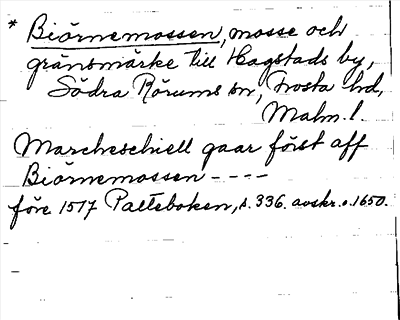 * Biörnemossen, mosse och
gränsmärke till Hagstads by,
Södra Rörums sn, Frosta hd,
Malm. l.
Marcheschiell gaar först aff
Biörnemossen - - - -
före 1517 Palteboken, s. 336. avskr. o. 1650.